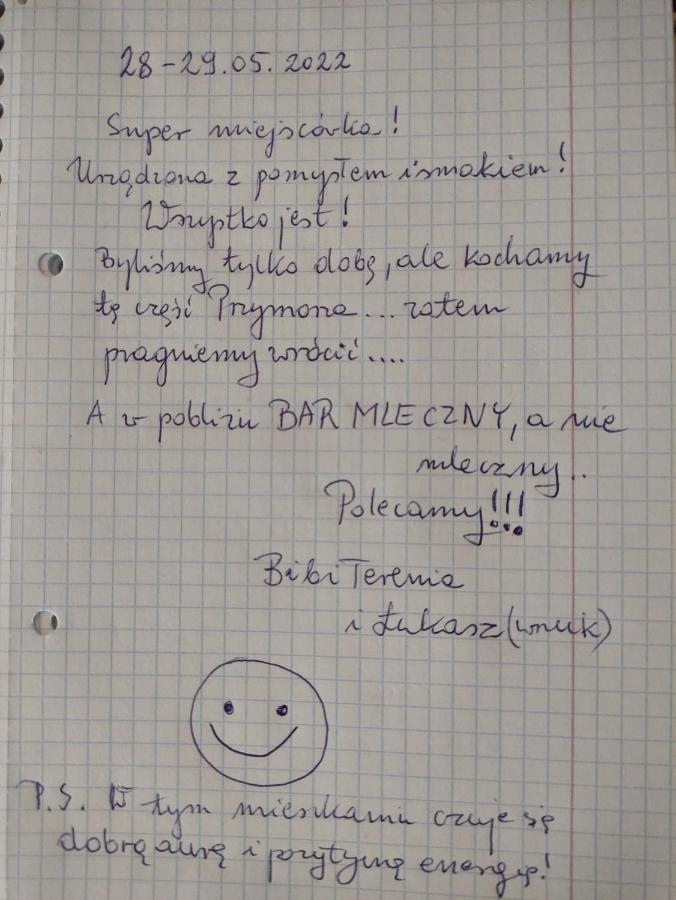 28-29.05.2022
Super miejscówka!
Urządzona z pomysłem i smakiem!
Wszystko jest!
Byliśmy tylko dobę, ale kochamy
tę część Przymorza... zatem
pragniemy wrócić....
A w pobliżu BAR MLECZNY, a nie
mleczny..
Polecamy!!!
Bibi Terenia
i Łukasz (wnuk)
P.S. W tym mieszkaniu czuje się
dobrą aurę i pozytywną energię!